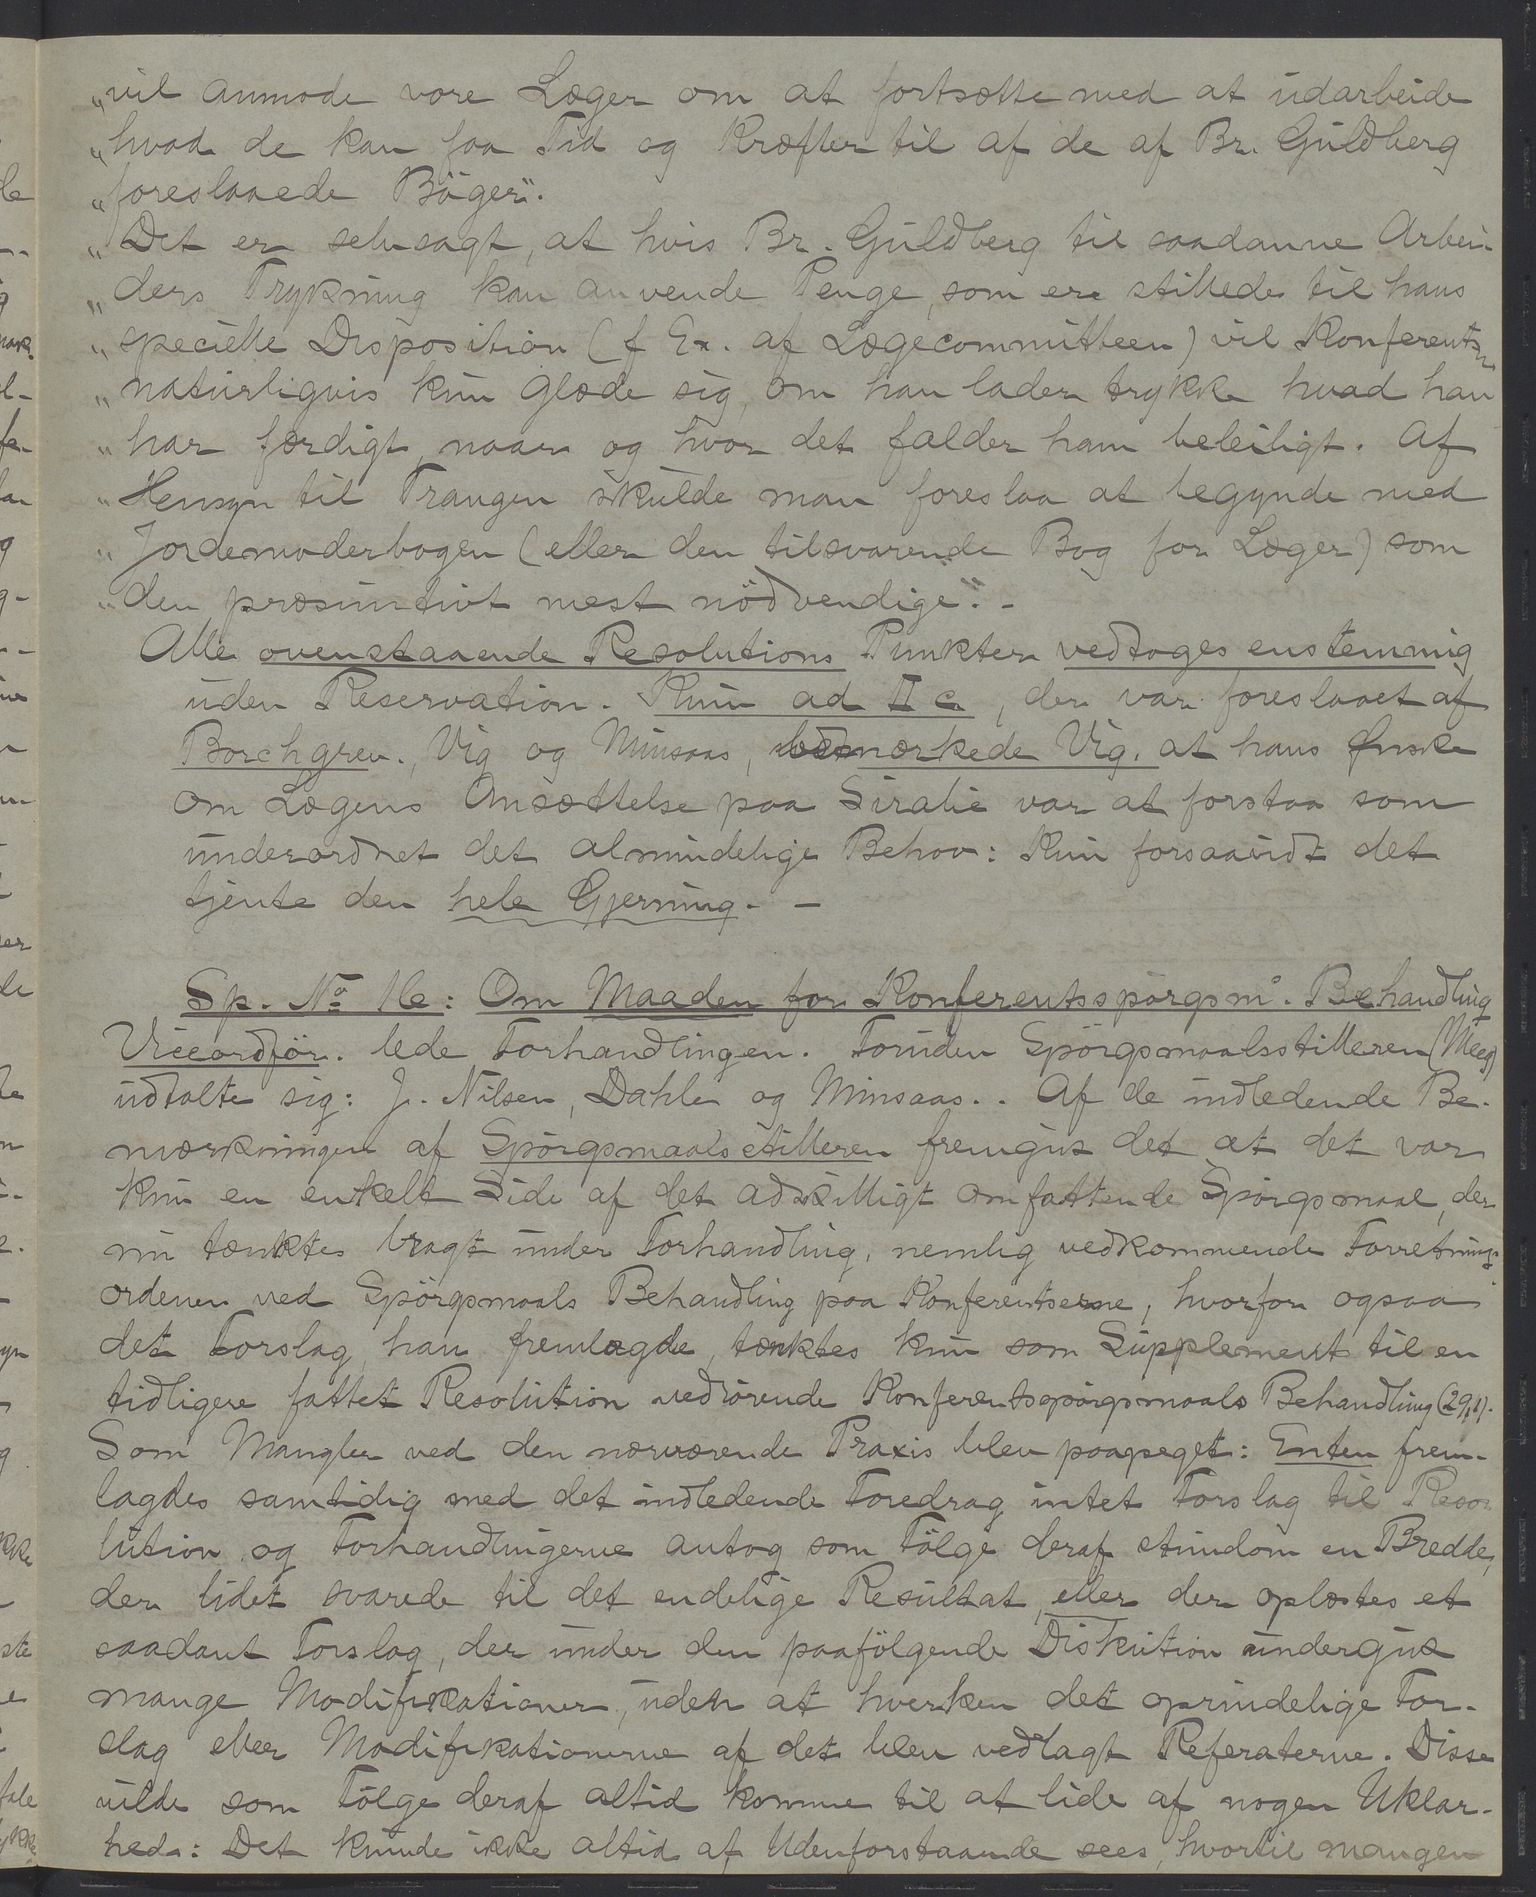 „vil anmode vore Læger om at fortsætte med at udarbeide
„hvad de kan faa Tid og Kræfter til af de af Br. Guldberg
„foreslaaede Böger“.
„Det er selvsagt, at hvis Br. Guldberg til saadanne Arbei-
„ders Trykning kan anvende Penge, som ere stillede til hans
„specielle Disposition (f Ex. af Lægecommitteen) vil Konferentsen
„naturligvis kun glæde sig, om han lader trykke hvad han
„har færdigt, naar og hvor det falder ham beleiligt. Af
„Hensyn til Trangen skulde man foreslaa at begynde med
„Jordemoderbogen (eller den tilsvarende Bog for Læger) som
„den præsumtivt mest nödvendige“. -
Alle ovenstaaende Resolutions Punkter vedtoges enstemmig
uden Reservation. Kun ad II c, der var foreslaaet af
Borchgrev., Vig og Minsaas, bemærkede Vig. at hans Ønske
om Lægens Ansættelse paa Sirabe var at forstaa som
underordnet det almindelige Behov: Kun forsaavidt det
tjente den hele Gjerning. -
Sp. No 16: Om Maaden for Konferentsspörgsm°. Behandling
Viceordför. lede Forhandlingen. Foruden Spörgsmaalsstilleren (Meeg)
udtalte sig: J. Nilsen, Dahle og Minsaas.. Af de indledende Be-
mærkninger af Spörgsmaalsstilleren fremgik det at det var
kun en enkelt Side af det adskilligt omfattende Spörgsmaal, der
nu tænktes bragt under Forhandling, nemlig vedkommende Forretnings-
ordenen ved Spörgsmaals Behandling paa Konferentserne, hvorfor ogsaa
det Forslag, han fremlagde, tænktes kun som Supplement til en
tidligere fattet Resolution vedrörende Konferentsspörgsmaals Behandling
Som Mangler ved den nærværende Praxis blev paapeget: Enten frem-
lagdes samtidig med det indledende Foredrag intet Forslag til Reso-
lution, og Forhandlingerne antog som Fölge deraf stundom en Bredde,
der lidet svarede til det endelige Resultat, eller der oplæstes et
saadant Forslag, der under den paafölgende Diskution undergik
mange Modifikationer, uden at hverken det oprindelige For-
slag eller Modifikationerne af det blev vedlagt Referaterne. Disse
vilde som Fölge deraf altid komme til at lide af nogen Uklar-
hed: Det kunde ikke altid af Udenforstaaende sees, hvortil mangen